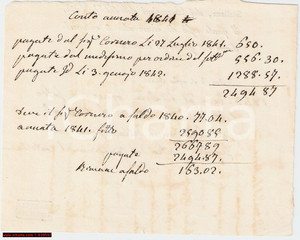 Conto annata 1841
pagate dal sig. Cornero li 27 Luglio 1841. 650.
pagate dal medesimo per ordine del 556.30.
pagate li 3. genajo 1842. 1288.57
2494.87
deve il sig. Cornero a saldo 1840. 77.04.
annata 1841. fitto 2580.85
2657.89
pagate 2494.87.
Rimane a saldo 163.02.